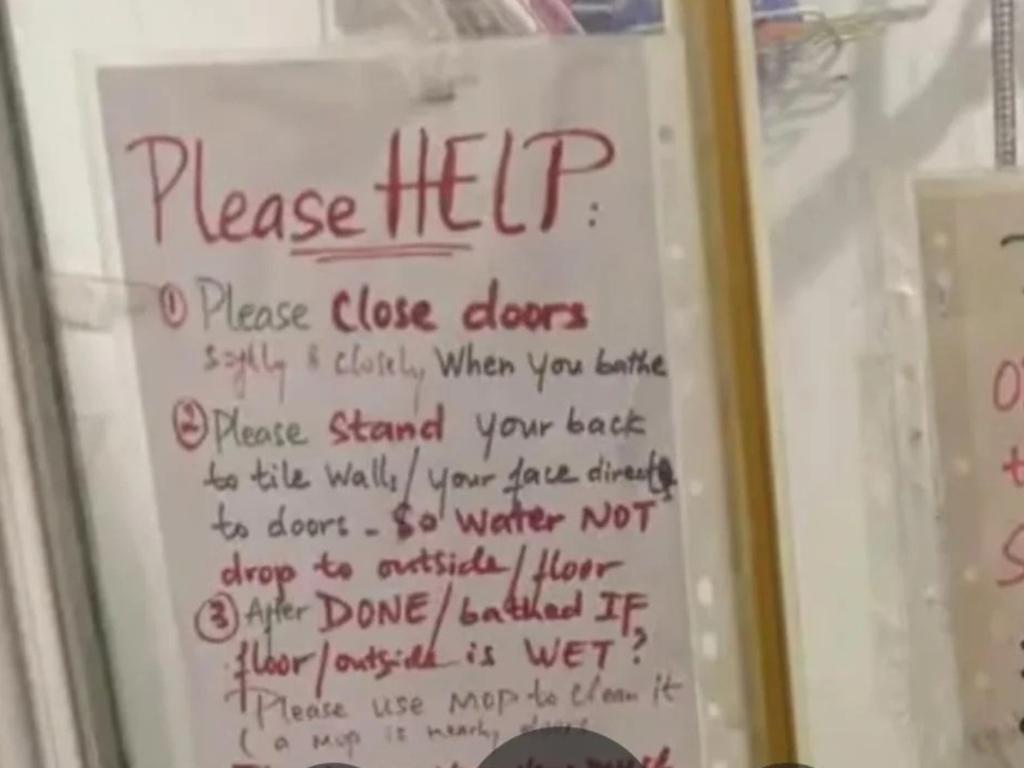 Please HELP:
① Please Close doors
& closely When you bathe
② Please Stand your back
to tile walls/your face direct
to doors - So Water NOT
drop to outside/floor
③ After DONE/bathed IF
floor/outside is WET?
Please use MOP to clean it
(a mop is nearby